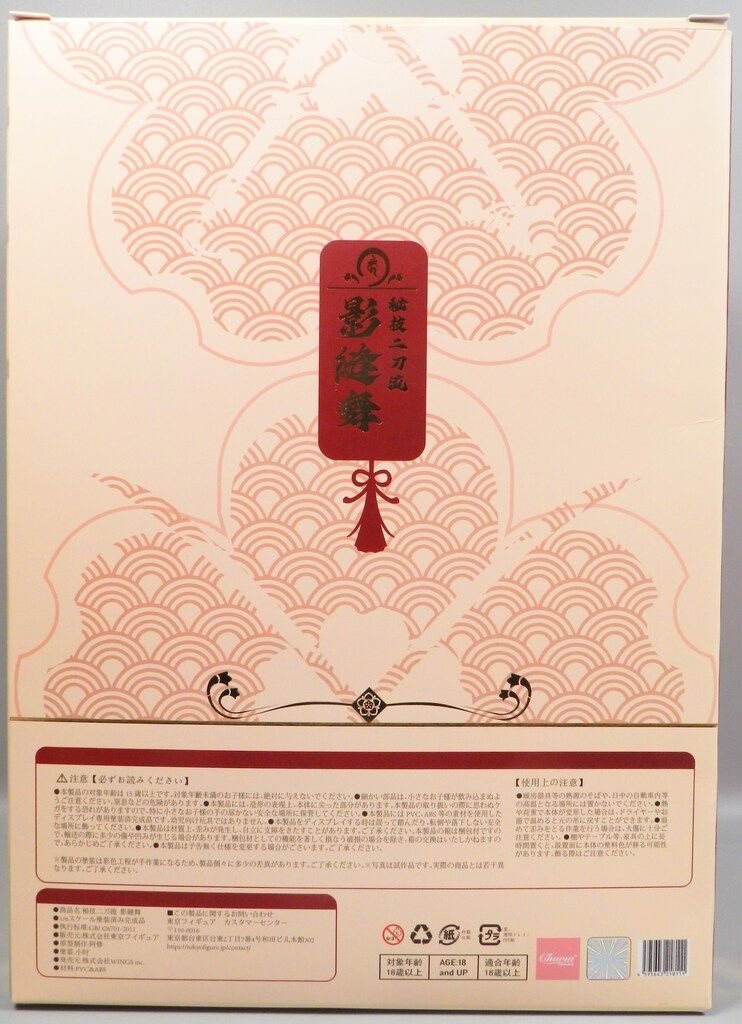 秘技二刀流
影縫舞
⚠注意【必ずお読みください】
●本製品の対象年齢は15歳以上です。対象年齢未満のお子様には、絶対に与えないでください。●細かい部品は、小さなお子様が飲み込まぬよ
うご注意ください。窒息などの危険があります。●本製品には、造形の表現上、本体に尖った部分があります。本製品の取り扱いの際に思わぬケ
ガをする恐れがありますので、特に小さなお子様の手の届かない安全な場所に保管してください。●本製品には PVC、ABS 等の素材を使用した
ディスプレイ専用塗装済完成品です。幼児向けのトイではありません。●本製品をディスプレイする時は誤って踏んだり、転倒や落下しない安全
な場所に飾ってください。●本製品は材質上、歪みが発生し、自立に支障をきたすことがあります、ご了承ください。本製品の箱は梱包材ですの
で、輸送の際に多少の傷や凹みが生じる場合があります。梱包材としての機能を著しく損なう破損の場合を除き、箱の交換はいたしかねますの
で、あらかじめご了承ください。●本製品は予告無く仕様を変更する場合がございます、ご了承ください。
※製品の塗装は彩色工程が手作業になるため、製品個々に多少の差異があります、ご了承ください。※写真は試作品です。実際の商品とは若干異
なります。ご了承ください。
【使用上の注意】
●暖房器具等の熱源のそばや、日中の自動車内等
の高温となる場所には置かないでください。●熱
や荷重で本体が変形した場合は、ドライヤーやお
湯で温めると元の形に戻すことができます。●温
めて歪みをとる作業を行う場合は、火傷に十分ご
注意ください。●棚やテーブル等、家具の上に長
時間置くと、設置面に本体の塗料色が移る可能性
があります。飾る際はご注意ください。
●商品名:秘技二刀流 影縫舞
●1/6スケール塗装済み完成品
●執行标准:GB/T26701-2011
●販売元:株式会社東京フィギュア
●原型制作:阿修
●塗装:小时
●発売元:株式会社WINGS inc.
●材料:PVC&ABS
■この製品に関するお問い合わせ
東京フィギュア カスタマーセンター
〒110-0016
東京都台東区台東2丁目7番4号和田ビル本館302
https://tokyofigure.jp/contact/
紙
プラ
対象年齢
18歳以上
AGE:18
and UP
適合年齢
18歳以上
Charm